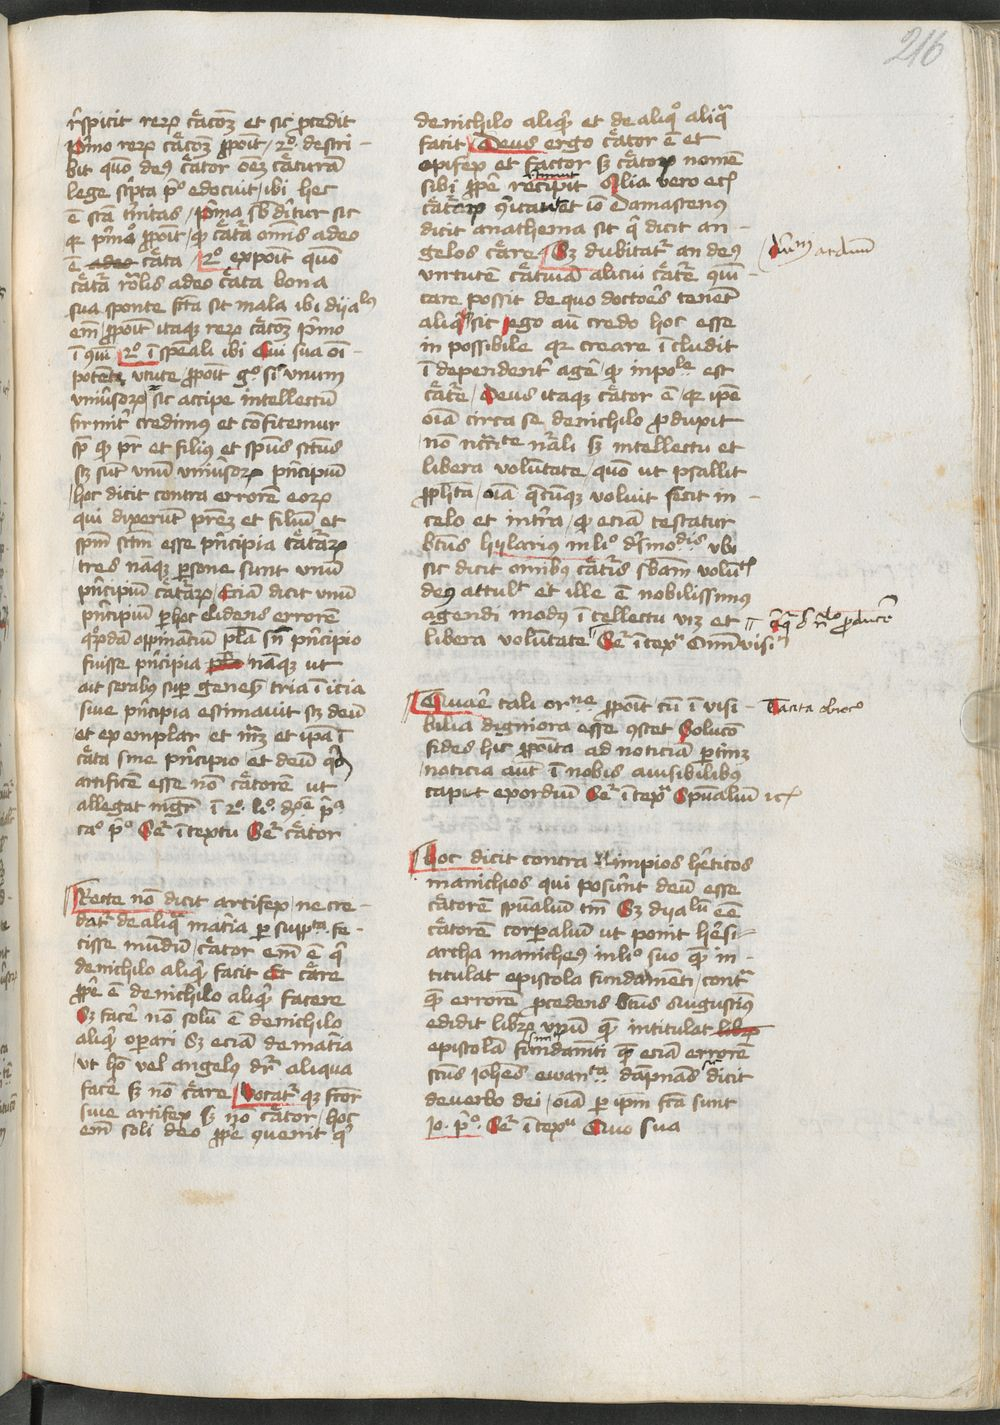 216
respicit rerum creacionem et sic procedit
primo rerum creacionem proponit / 2o descri-
bit quomodo deus creator omnem creaturam
lege scripta populo edocuit / ibi hec
est sancta trinitas / prima subdiuiditur sic
quia primo proponit / quod creatura omnis a deo
est creata / 2o exponit quomodo
creatura racionalis a deo creata bona
sua sponte facta sit mala ibi dyabolus
enim / proponit itaque rerum creacionem primo
in generali 2o in speciali ibi Qui sua omni-
potenti virtute / proponit ergo si vnum
vniuersorum / sic accipe intellectum
firmiter credimus et confitemur
quod pater et filius et spiritus sanctus
scilicet sunt vnum vniuersorum principium
hoc dicit contra errorem eorum
qui dixerunt patrem et filium et
spiritum sanctum esse principia creaturarum
tres namque persone sunt vnum
principium creaturarum / Eciam dicit vnum
principium per hoc elidens errorem
quorundam oppinancium plura sine principio
fuisse principia namque ut
ait strabus super genesim tria inicia
siue principia estimauit scilicet deum
et exemplar et materiam et ipsa in
creata sine principio et deum quasi
artificem esse non creatorem ut
allegat magister in 2o libro
ca° p° Sequitur in textu Sequitur creator
Recte non dicit artifex ne cre-
datur de aliqua materia presupposita fe-
cisse mundum / creator enim est qui
de nichilo aliquid facit Et creare
proprie est de nichilo aliquid facere
Sed facere non solum est de nichilo
aliquid operari Sed eciam de materia
vt homo vel angelus dicitur aliqua
facere sed non creare / vocatur que factor
siue artifex sed non creator / hoc
enim soli deo proprie conuenit qui
de nichilo aliquid et de aliquo aliqua
facit / Deus ergo creator est et
opifex et factor sed creatoris nomen
sibi proprie recipit Alia vero etc
dicit anathema sit qui dicit an-
gelos creare / Sed dubitatur an deus
virtutem creatiuam alicui creature communi-
care possit de quo doctores tenent
aliqui sic / ego autem credo hoc esse
in possibile quia creare includit
independenter agere quod inpossibile est
creature / Deus itaque creator est / quia ipse
omnia circa se de nichilo produxit
non necessitate naturali sed intellectu et
libera voluntate / quomodo ut psallit
propheta / omnia quecumque voluit fecit in-
celo et in terra / quod eciam testatur
beatus hylarius in libro de sinodis vbi
sic dicit omnibus creaturis substanciam voluntas
dei attulit et ille est nobilissimus
agendi modus intellectu viz et
libera voluntate Sequitur in textu Omnium visi
Quare tali ordine proponit cum inuisi-
bilia digniora esse constet Solucio
fides hic proposita ad noticiam pertinet
noticia autem in nobis a visibilibus
capit exordium Sequitur in textu Spiritualium etc
Hoc dicit contra impios hereticos
manicheos qui posuerunt deum esse
creatorem spiritualium tantum Sed dyabolum esse
creatorem corporalium ut ponit heresi-
archa manicheus in libro suo quem in-
titulat epistola fundamenti / contra
quem errorem procedens beatus Augustinus
edidit librum vnum quem intitulat
epistolam fundamenti quem eciam errorem
sanctus Johannes ewangelista dampnans dicit
de verbo dei / omnia per ipsum facta sunt
Jo. p° Sequitur in textu Quo sua
Dubium arduum
Tacita obiectio